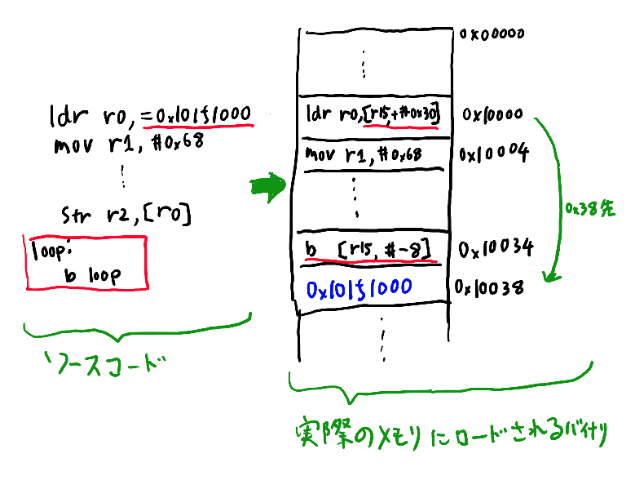 ldr r0, =0x101f1000
mov r1, #0x68
⋮
str r2, [r0]
loop:
b loop
ソースコード
0x00000
⋮
ldr r0,[r15,+#0x30] 0x10000
mov r1, #0x68 0x10004
⋮
0x38先
b [r15, #-8] 0x10034
0x101f1000 0x10038
⋮
実際のメモリにロードされるバイナリ